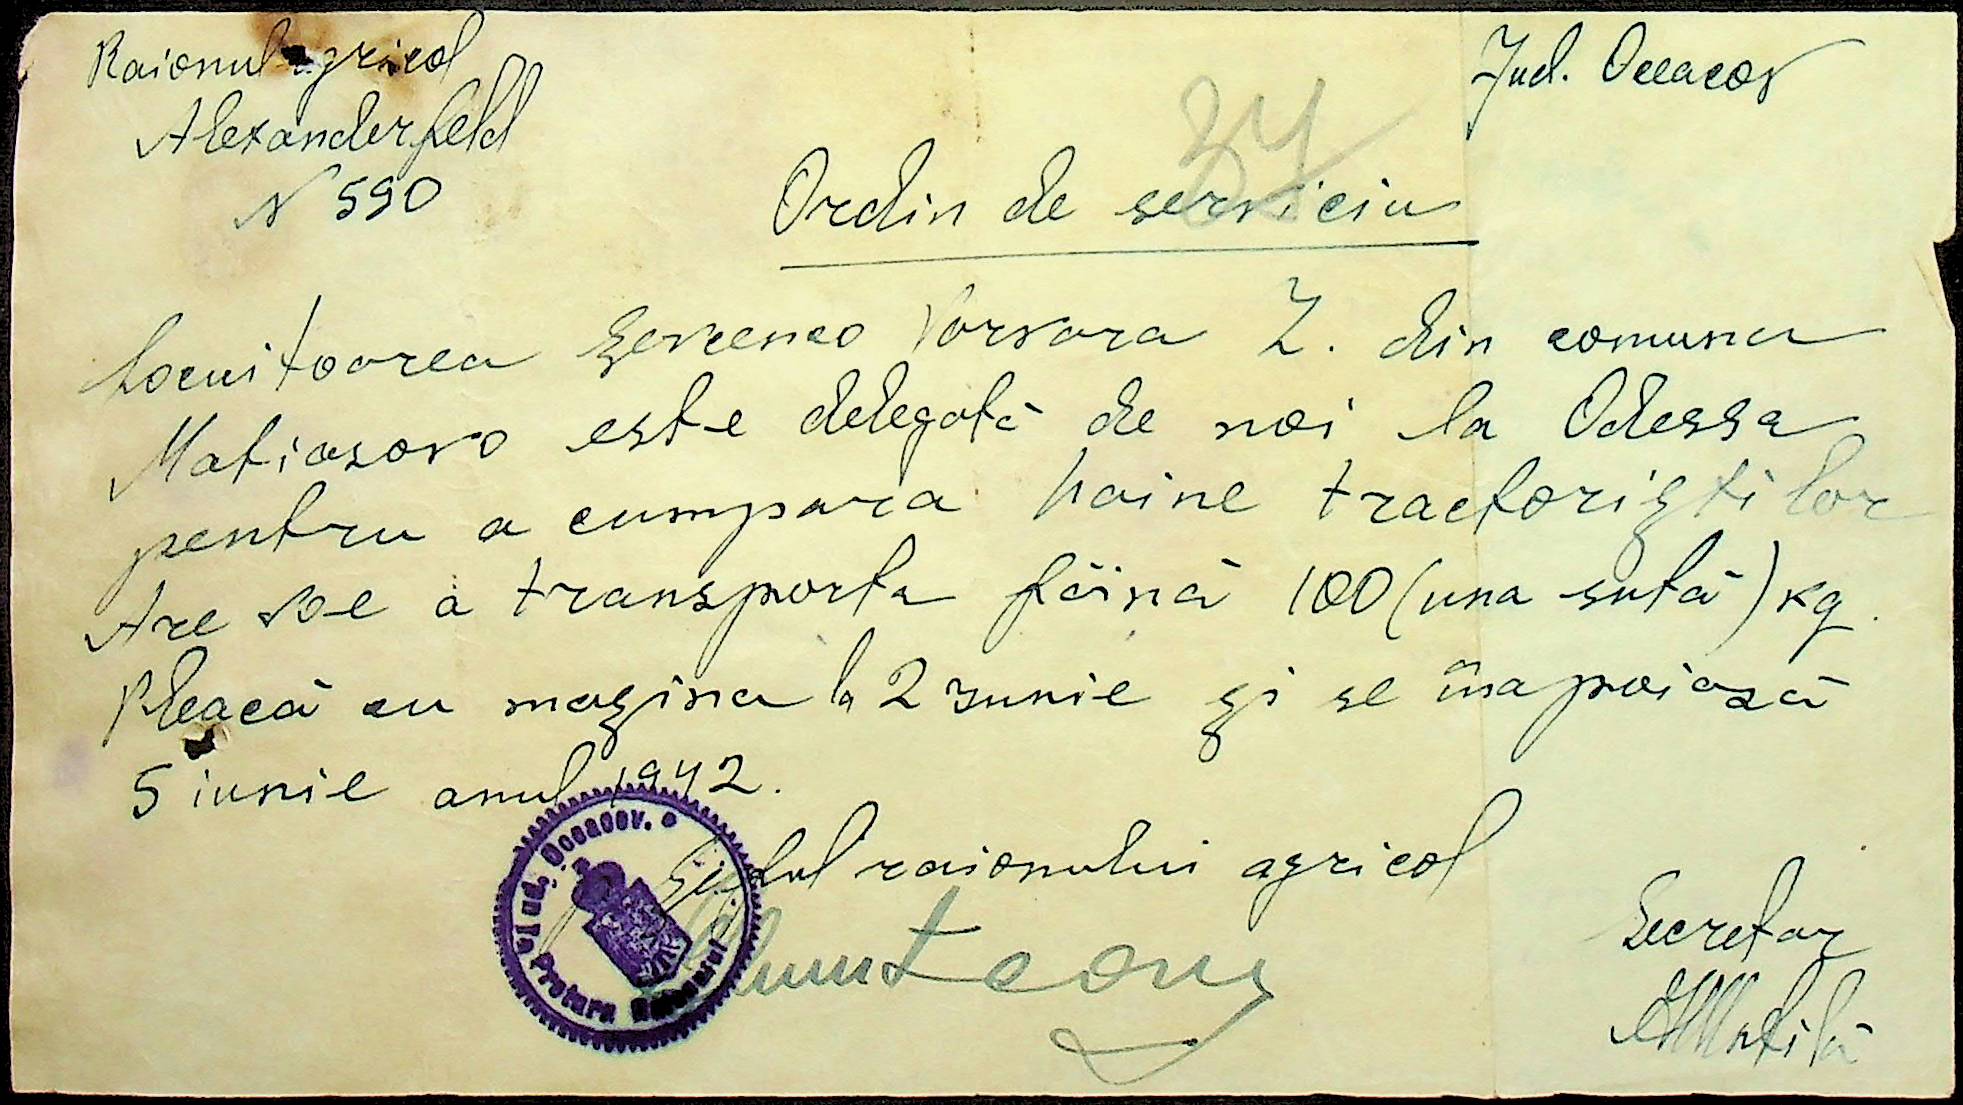 Raionul agricol
Alexanderfeld
N 590
Jud. Oceacov
34
Ordin de serviciu
Locuitoarea Șevcenco Varvara Z. din comuna
Matiasovo este delegată de noi la Odessa
pentru a cumpara haine tractoriștilor
Are voe a transporta făină 100 (una sută) kg.
Pleacă cu mașina la 2 iunie și se înapoiază
5 iunie anul 1942.
Șeful raionului agricol
Munteanu
Secretar
Jud. Oceacov.
Pretura Raionului